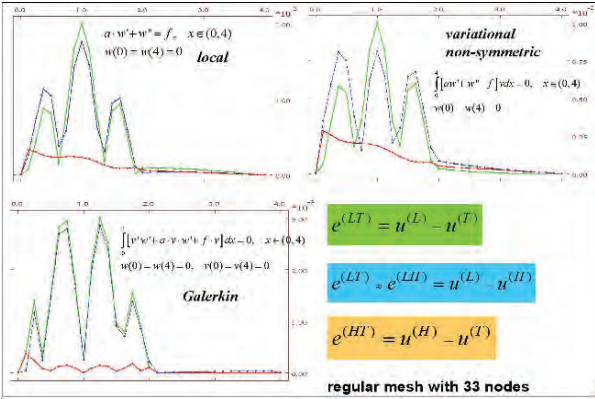 0.0 1.0 2.0 3.0 4.0
a·w'+w''=f, x∈(0,4)
w(0)=w(4)=0
local
0.00
0.0 1.0 2.0 3.0
variational
non-symmetric
∫[aw'+w'' f]vdx=0, x∈(0,4)
w(0) w(4) 0
1.00
0.00
0.0 1.0 2.0 3.0 4.0
∫[v'w'+a·v·w'+f·v]dx=0, x∈(0,4)
w(0)=w(4)=0, v(0)=v(4)=0
Galerkin
0.00
e^(LT) = u^(L) − u^(T)
e^(LT) ≈ e^(LH) = u^(L) − u^(H)
e^(HT) = u^(H) − u^(T)
regular mesh with 33 nodes